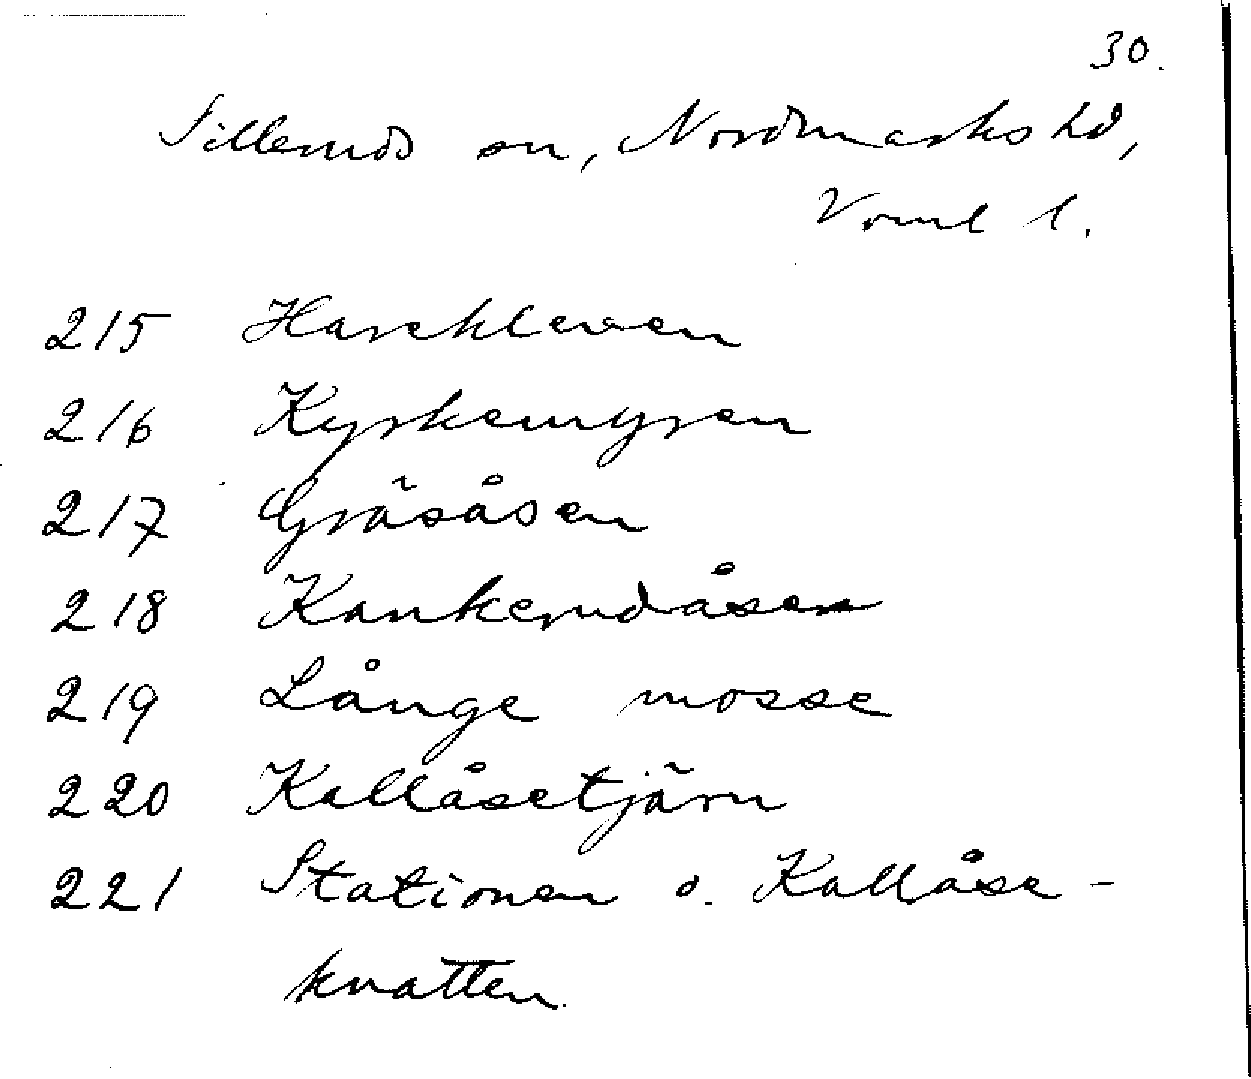 30.
Silleruds sn, Nordmarks hd,
Värml l.
215 Harekleven
216 Kyrkemyren
217 Gräsåsen
218 Kankerudåsen
219 Långe mosse
220 Kallåsetjärn
221 Stationen o. Kallåse-
knatten.